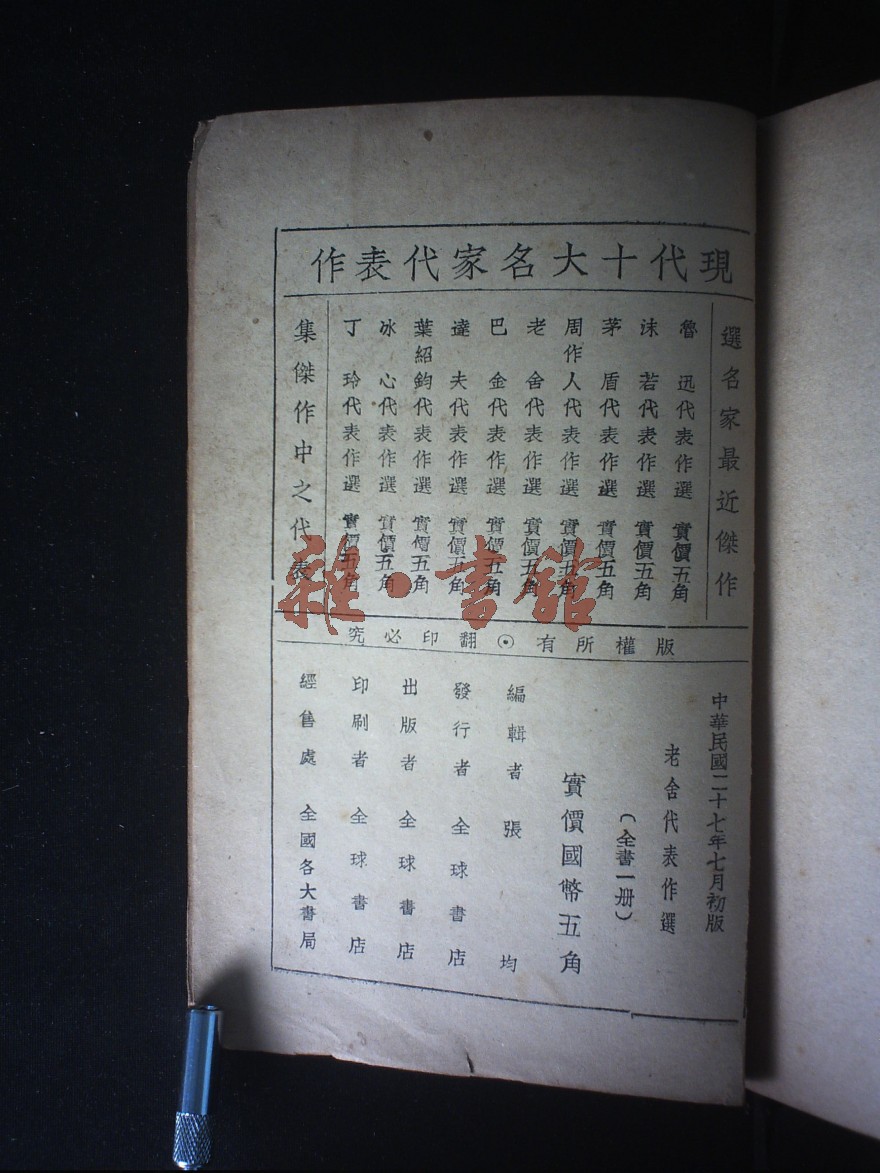 現代十大名家代表作
選名家最近傑作
魯迅代表作選 實價五角
沫若代表作選 實價五角
茅盾代表作選 實價五角
周作人代表作選 實價五角
老舍代表作選 實價五角
巴金代表作選 實價五角
達夫代表作選 實價五角
葉紹鈞代表作選 實價五角
冰心代表作選 實價五角
丁玲代表作選 實價五角
集傑作中之代表
雜·書館
版權所有⊙翻印必究
中華民國二十七年七月初版
老舍代表作選
（全書一册）
實價國幣五角
編輯者 張均
發行者 全球書店
出版者 全球書店
印刷者 全球書店
經售處 全國各大書局